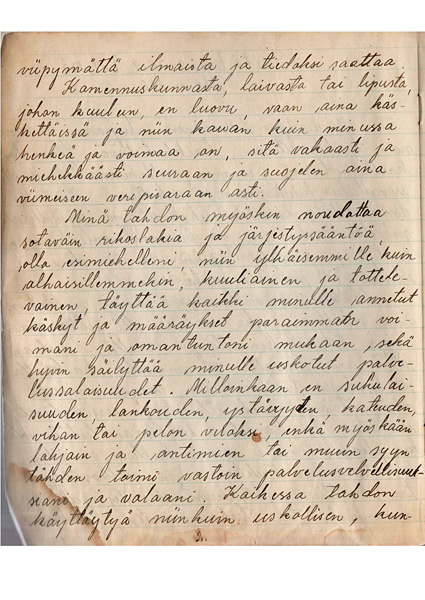 viipymättä ilmaista ja tiedoksi saattaa.
Komennuskunnasta, laivasta tai lipusta,
johon kuulun, en luovu, vaan aina käs-
kettäissä ja niin kauan kuin minussa
henkeä ja voimaa on, sitä vakaasti ja
miehekkäästi seuraan ja suojelen aina
viimeiseen veripisaraan asti.
Minä tahdon myöskin noudattaa
sotaväin rikoslakia ja järjestyssääntöä,
olla esimiehelleni niin ylhäisemmille kuin
alhaisillemmekin, kuuliainen ja tottele-
vainen, täyttää kaikki minulle annetut
käskyt ja määräykset paraimman voi-
mani ja omantuntoni mukaan, sekä
hyvin säilyttää minulle uskotut palve-
lussalaisuudet. Milloinkaan en sukulai-
suuden, lankouden, ystävyyden, kateuden,
vihan tai pelon vuoksi, enkä myöskään
lahjain ja antimien tai muun syyn
tähden toimi vastoin palvelusvelvollisuut-
tani ja valaani. Kaikessa tahdon
käyttäytyä niinkuin uskollisen, kun-
2.